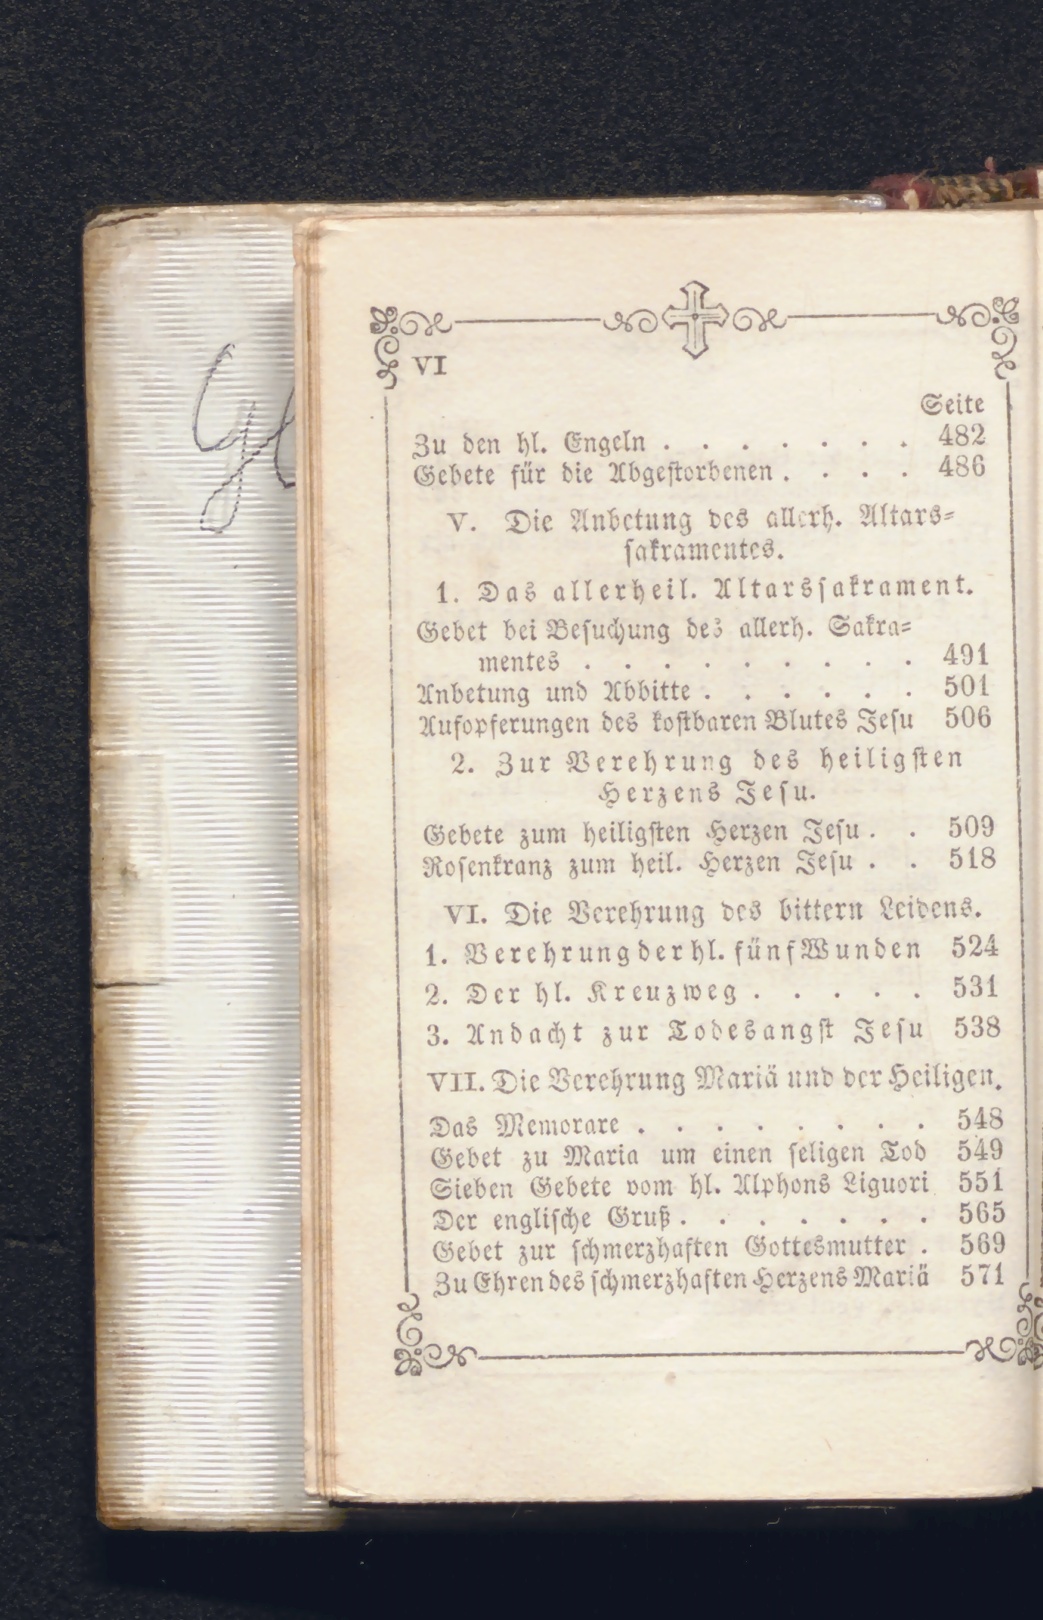 VI
Seite
Zu den hl. Engeln . . . . . . . 482
Gebete für die Abgestorbenen . . . . 486
V. Die Anbetung des allerh. Altars=
sakramentes.
1. Das allerheil. Altarssakrament.
Gebet bei Besuchung des allerh. Sakra=
mentes . . . . . . . . . 491
Anbetung und Abbitte . . . . . . 501
Aufopferungen des kostbaren Blutes Jesu 506
2. Zur Verehrung des heiligsten
Herzens Jesu.
Gebete zum heiligsten Herzen Jesu . . 509
Rosenkranz zum heil. Herzen Jesu . . 518
VI. Die Verehrung des bittern Leidens.
1. Verehrung der hl. fünf Wunden 524
2. Der hl. Kreuzweg . . . . . 531
3. Andacht zur Todesangst Jesu 538
VII. Die Verehrung Mariä und der Heiligen.
Das Memorare . . . . . . . . 548
Gebet zu Maria um einen seligen Tod 549
Sieben Gebete vom hl. Alphons Liguori 551
Der englische Gruß . . . . . . . 565
Gebet zur schmerzhaften Gottesmutter . 569
Zu Ehren des schmerzhaften Herzens Mariä 571